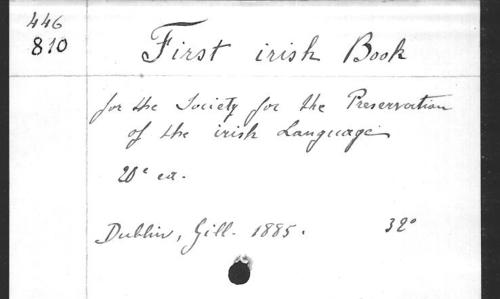 446
810
First irish Book
for the Society for the Preservation
of the irish Language
20e ea.
Dublin, Gill. 1885. 32°